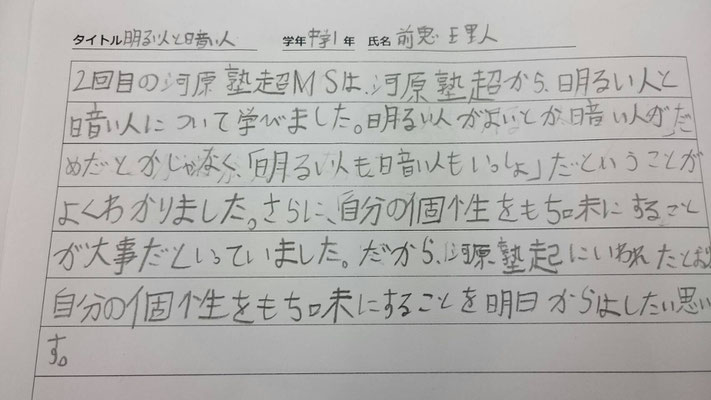 タイトル 明るい人と暗い人 学年 中学1年 氏名 前恵 王里人
2回目の河原塾超MSは、河原塾超から、明るい人と
暗い人について学びました。明るい人がよいとか暗い人が「だ
めだとかじゃなく、「明るい人も暗い人もいっしょ」だということが
よくわかりました。さらに、自分の個性をもち味にすること
が大事だといっていました。だから、河原塾起にいわれたとお
自分の個性をもち味にすることを明日からはしたい思い
す。